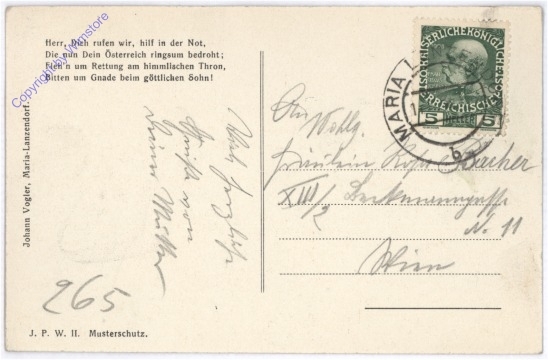 Herr, Dich rufen wir, hilf in der Not,
Die nun Dein Österreich ringsum bedroht;
Fleh'n um Rettung am himmlischen Thron,
Bitten um Gnade beim göttlichen Sohn!
Copyright by wilmstore
Johann Vogler, Maria-Lanzendorf.
von
Deiner Mutter
265
J. P. W. II. Musterschutz.
MARIA L
KAISERLICHE KÖNIGLICHE
ÖSTERREICHISCHE
5 HELLER 5
An Wohlg.
Fräulein Rosa
XIII/2
N. 11
Wien